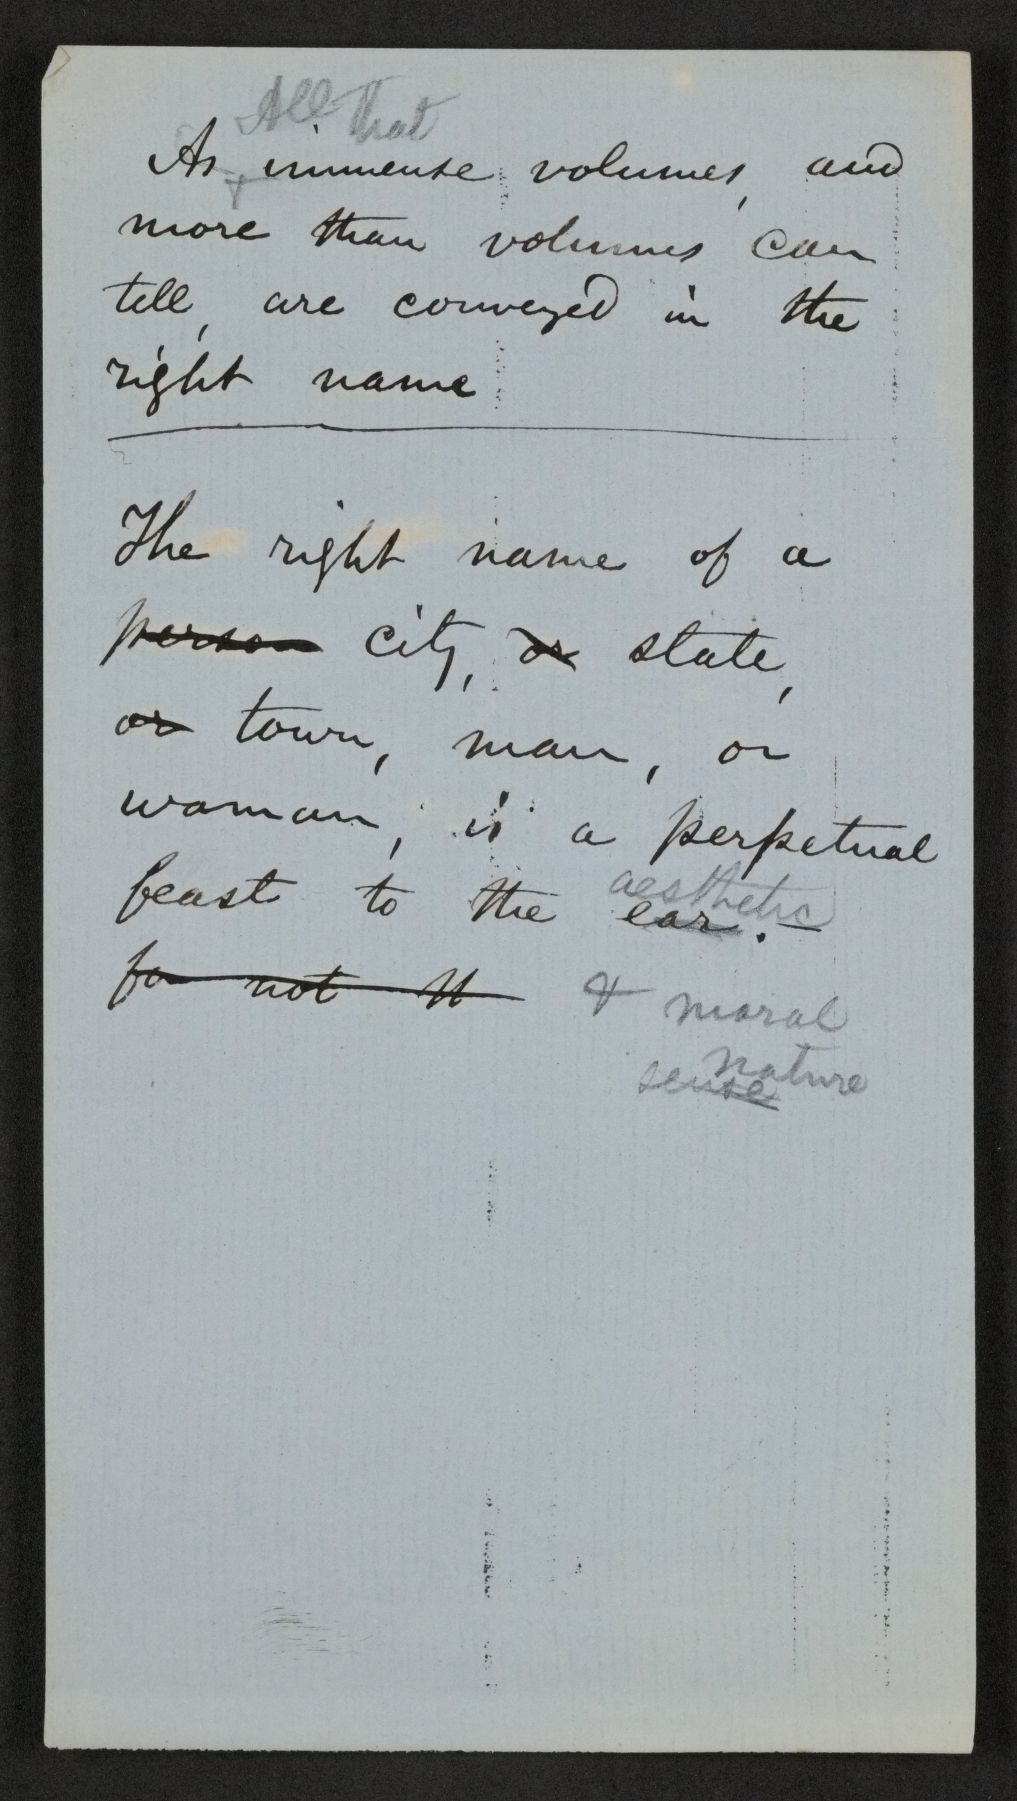 All that
As immense volumes, and
more than volumes can
tell, are conveyed in the
right name
The right name of a
person city, or state,
or town, man, or
woman, is a perpetual
aesthetic
feast to the ear.—
for not th & moral
nature
sense